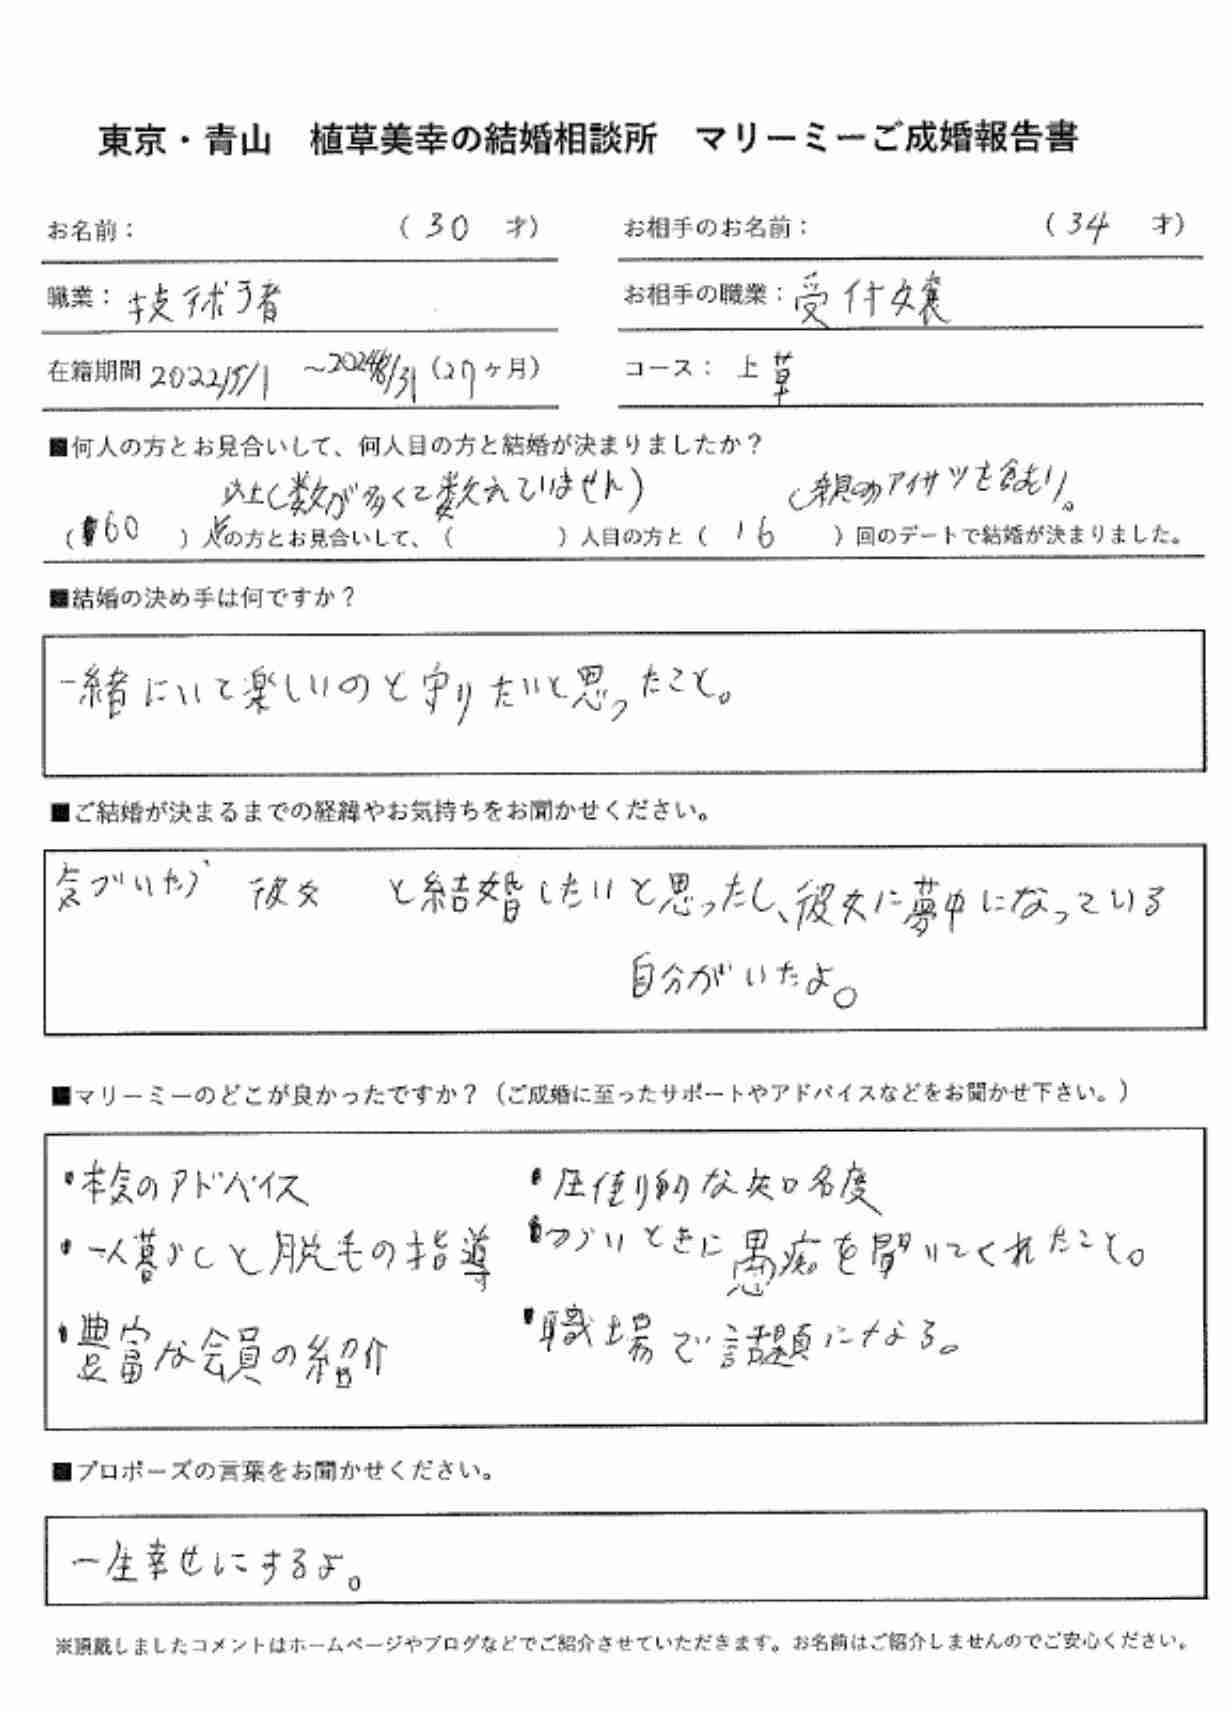 東京・青山　植草美幸の結婚相談所　マリーミーご成婚報告書
お名前：　（ 30 才）　お相手のお名前：　（ 34 才）
職業：技術者　お相手の職業：受付嬢
在籍期間 2022/5/1 ～2024/8/31（27ヶ月）　コース： 上草
■何人の方とお見合いして、何人目の方と結婚が決まりましたか？
以上（数が多くて数えていません）　（親のアイサツを含む）。
（ 60 ）人の方とお見合いして、（　　）人目の方と（ 16 ）回のデートで結婚が決まりました。
■結婚の決め手は何ですか？
一緒にいて楽しいのと守りたいと思ったこと。
■ご結婚が決まるまでの経緯やお気持ちをお聞かせください。
気づいたら 彼女 と結婚したいと思ったし、彼女に夢中になっている
自分がいたよ。
■マリーミーのどこが良かったですか？（ご成婚に至ったサポートやアドバイスなどをお聞かせ下さい。）
・本気のアドバイス　・圧倒的な知名度
・一人暮らしと脱毛の指導　・つらいときに愚痴を聞いてくれたこと。
・豊富な会員の紹介　・職場で話題になる。
■プロポーズの言葉をお聞かせください。
一生幸せにするよ。
※頂戴しましたコメントはホームページやブログなどでご紹介させていただきます。お名前はご紹介しませんのでご安心ください。